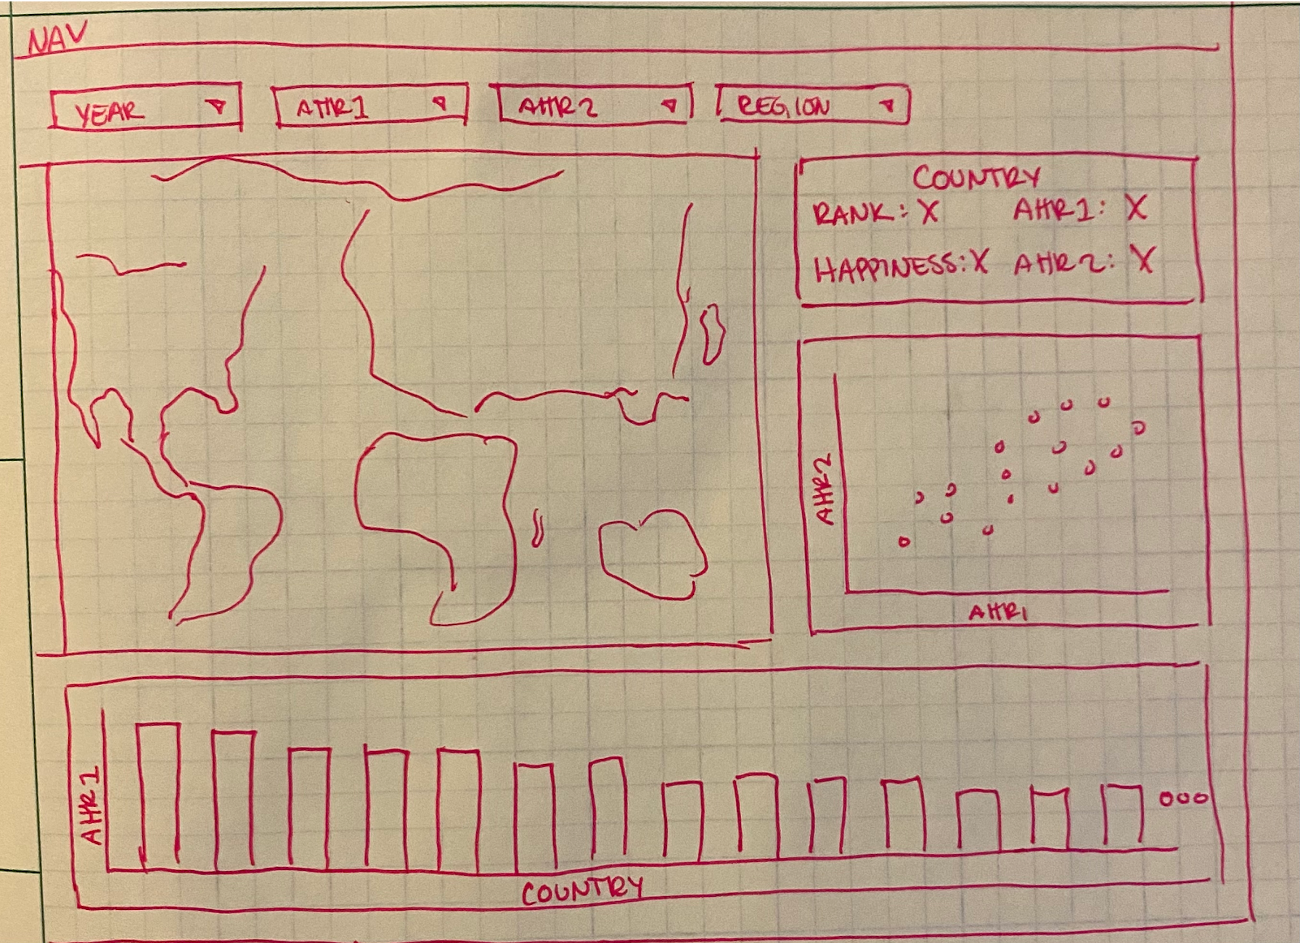 NAV
YEAR ATTR1 ATTR2 REGION
COUNTRY
RANK: X ATTR1: X
HAPPINESS: X ATTR2: X
ATTR2
ATTR1
ATTR1
COUNTRY